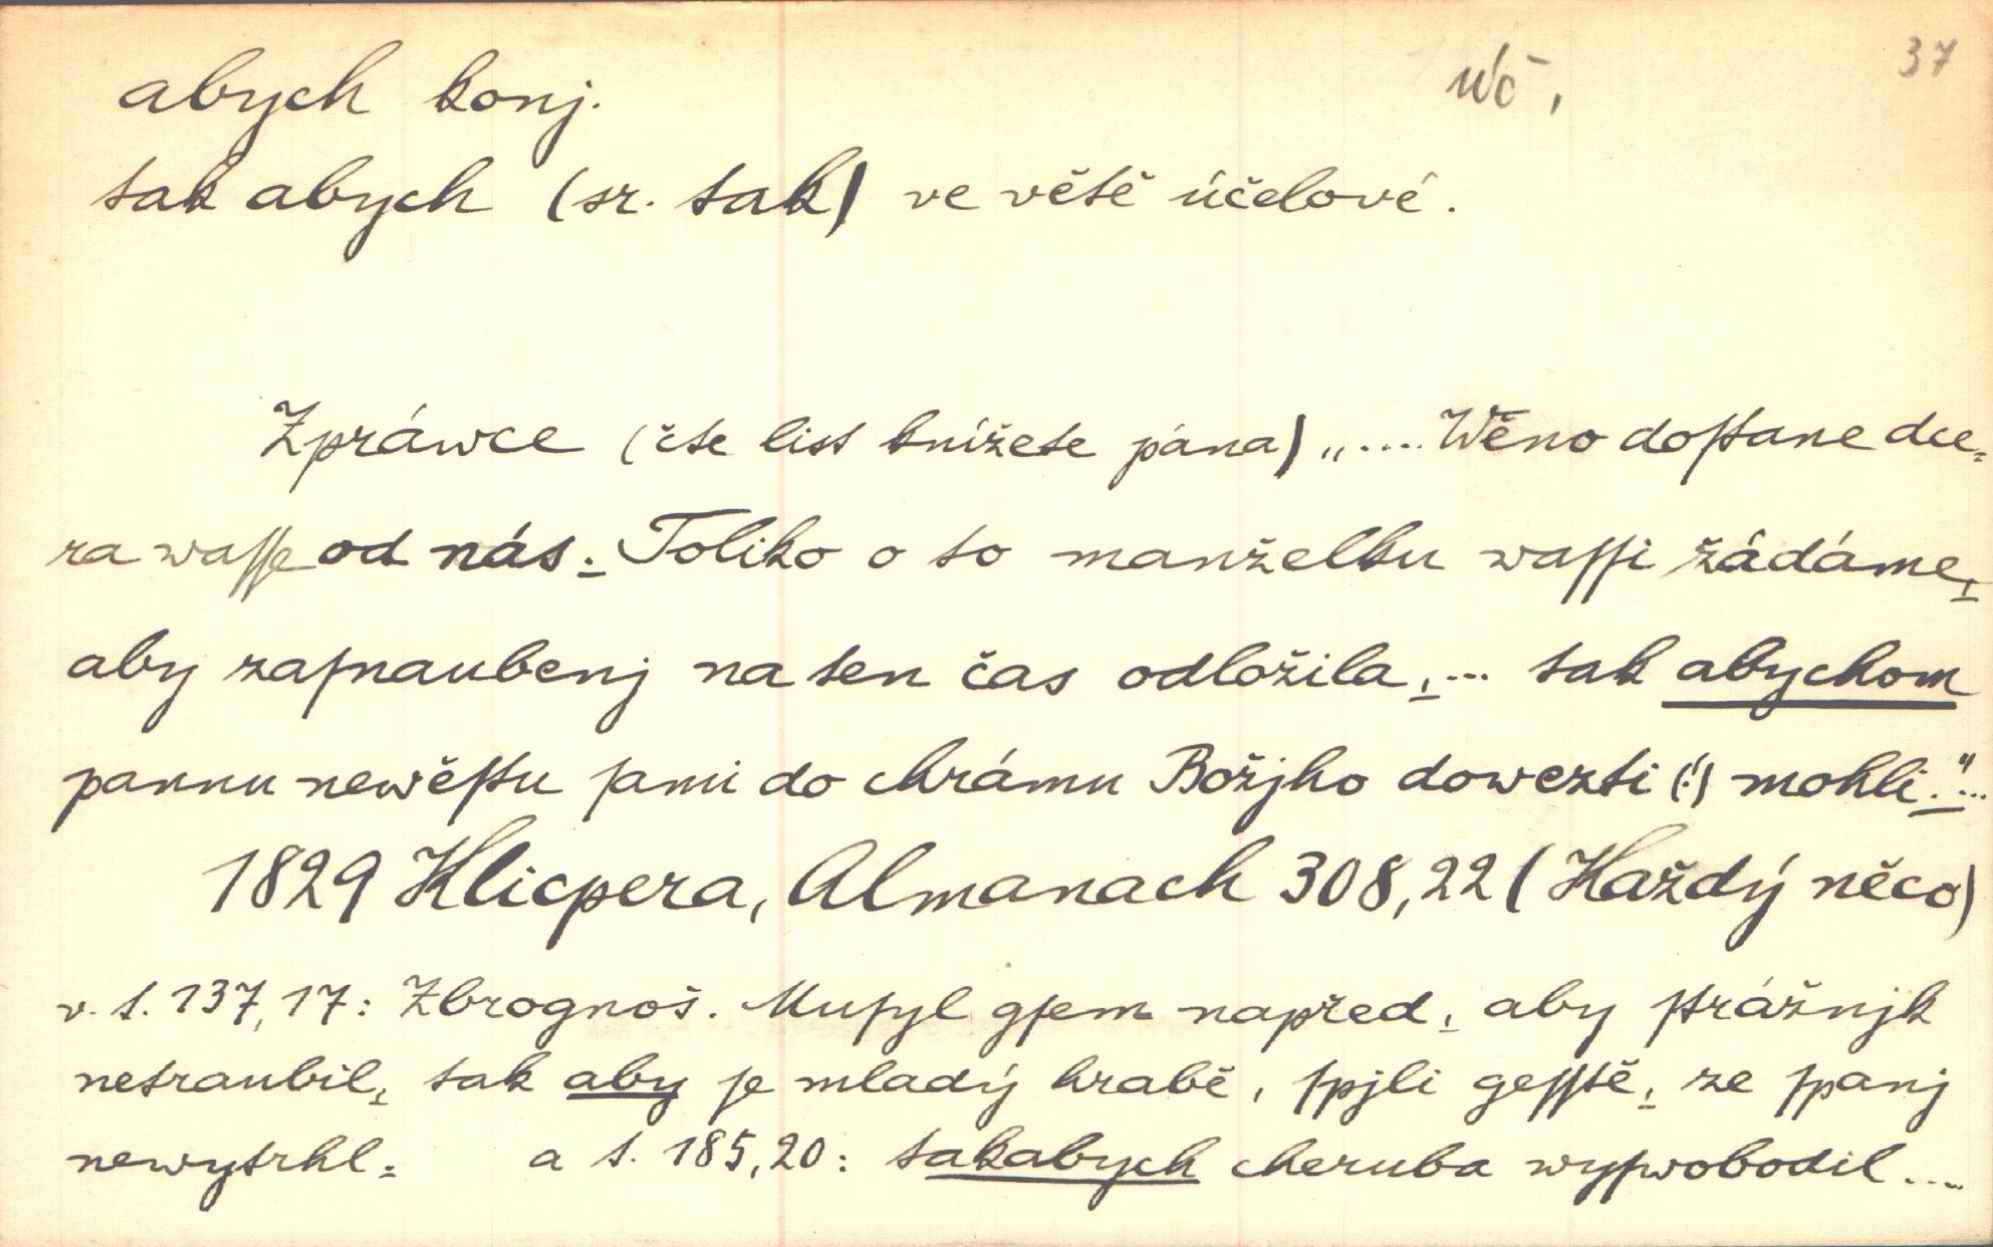 abych konj. úč, 37
tak abych (sr. tak) ve větě účelové.
Zpráwce (čte list knížete pána) „.... Wěno doſtane dce=
ra waſſe od nás. Toliko o to manželku waſſi žádáme,
aby zaſnaubenj na ten čas odložila, ... tak abychom
pannu newěſtu ſami do chrámu Božjho dowezti (!) mohli."...
1829 Klicpera, Almanach 308,22 (Každý něco)
v. t. 137,17: Zbrognoš. Muſyl gſem napřed, aby ſtrážnjk
netraubil, tak aby ſe mladý hrabě, ſpjli geſſtě, ze ſpanj
newytrhl. a t. 185,20: takabych cheruba wyſwobodil....